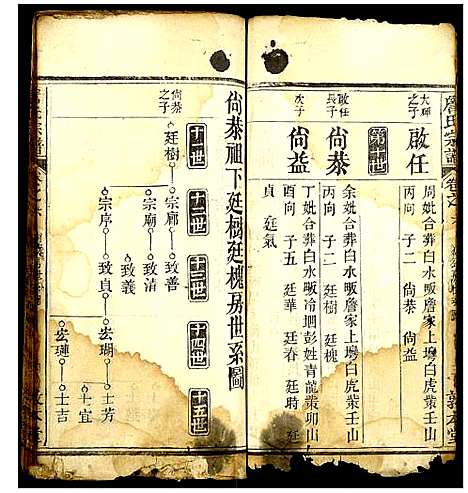 大暉
之子
啟任
周妣合葬白水畈詹家上塝白虎䉼壬山
丙向 子二 尚恭 尚益
第十世
啟任
長子
尚恭
余妣合葬白水畈詹家上塝白虎䉼壬山
丙向 子二 廷樹 廷槐
次子
尚益
丁妣合葬白水畈冷 彭姓青龍䉼卯山
向 子五 廷華 廷春 廷時 廷
貞 廷氣
尚恭祖下廷樹廷槐房世系圖
十一世
十二世
十三世
十四世
十五世
尚恭
之子
廷樹
宗廟
致善
宗廟
致清
致義
宗序
致貞
宏瑚
士芳
士宜
宏璉
士吉
氏宗譜